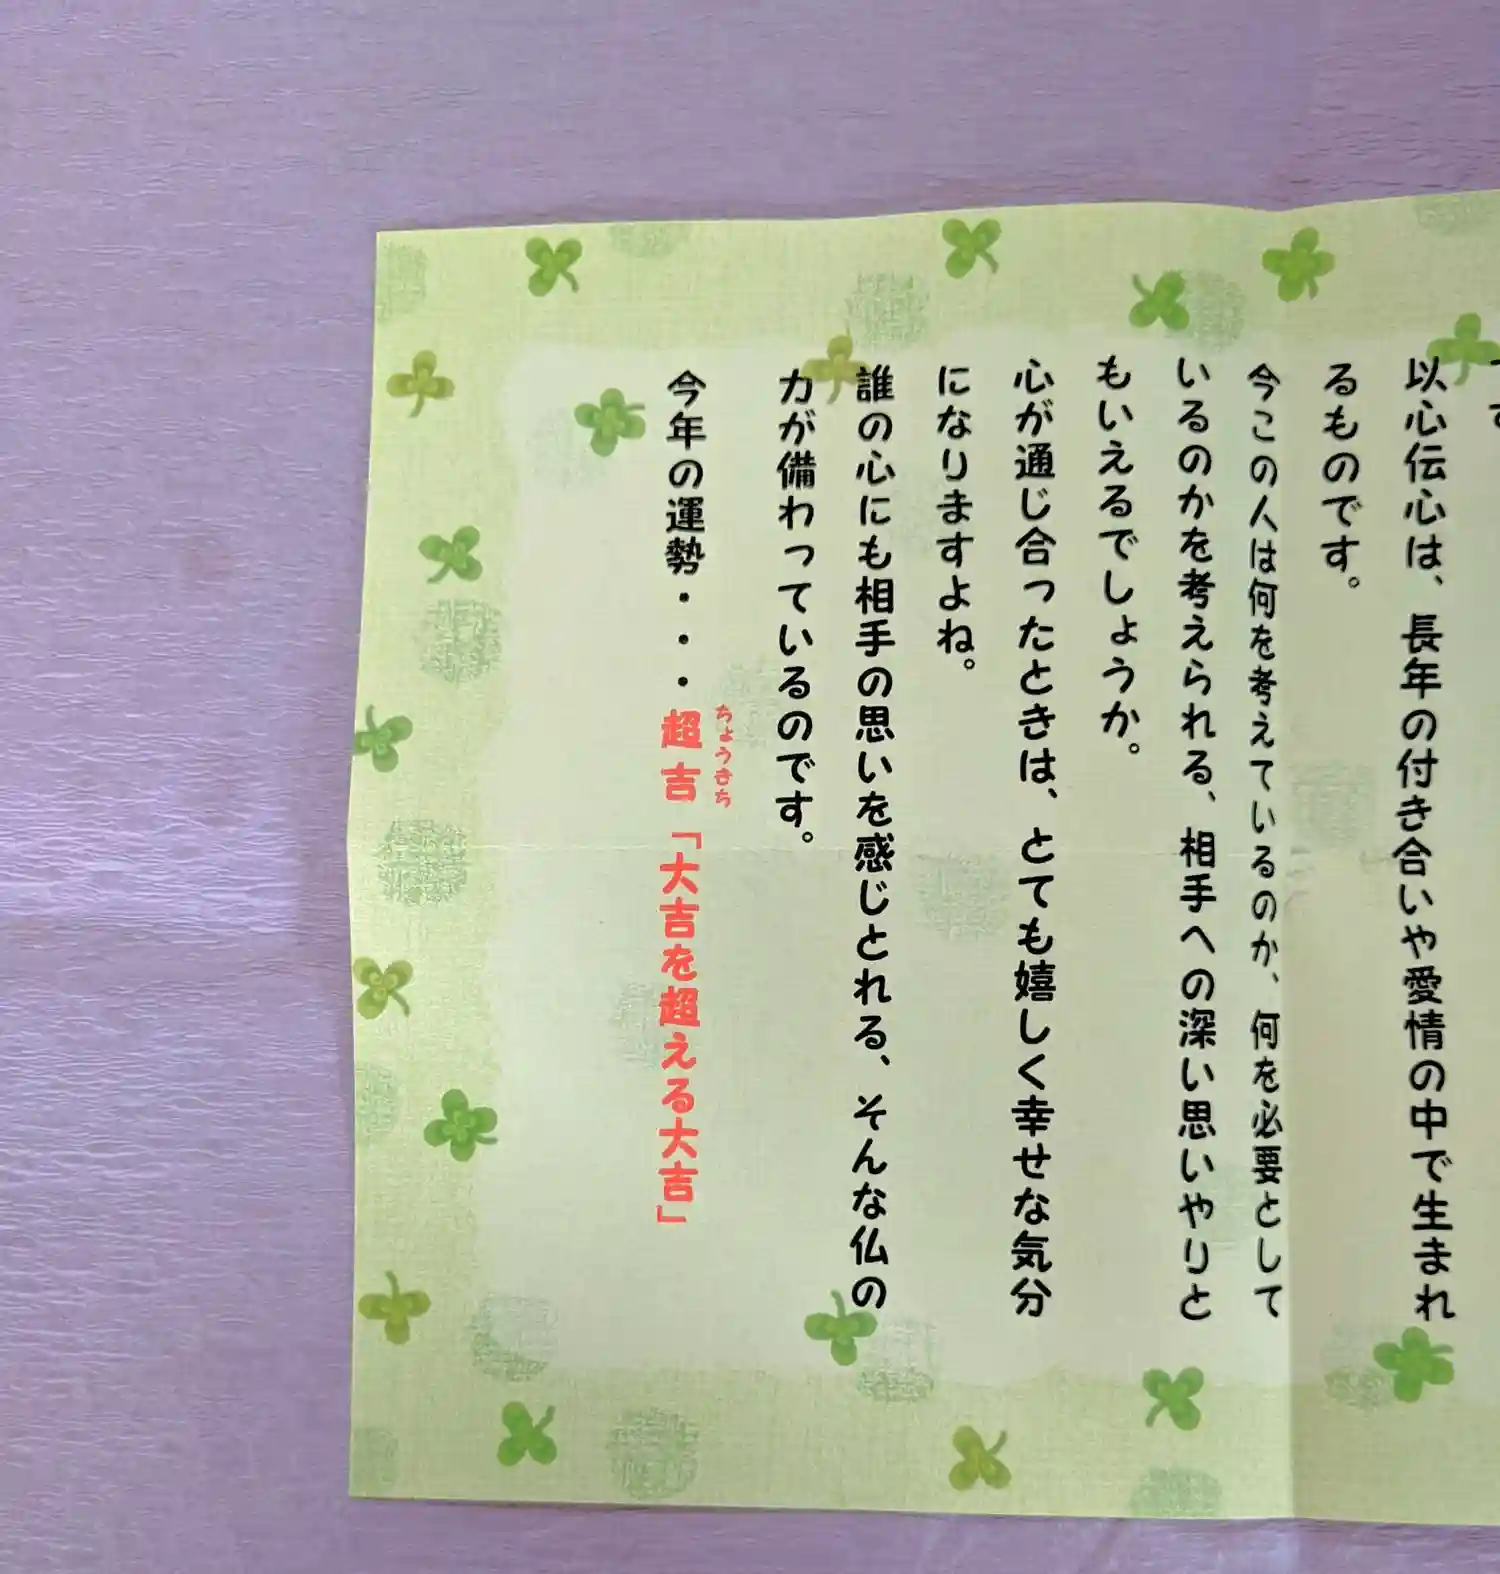 以心伝心は、長年の付き合いや愛情の中で生まれ
るものです。
今この人は何を考えているのか、何を必要として
いるのかを考えられる、相手への深い思いやりと
もいえるでしょうか。
心が通じ合ったときは、とても嬉しく幸せな気分
になりますよね。
誰の心にも相手の思いを感じとれる、そんな仏の
力が備わっているのです。
ちょうきち
今年の運勢・・・超吉「大吉を超える大吉」